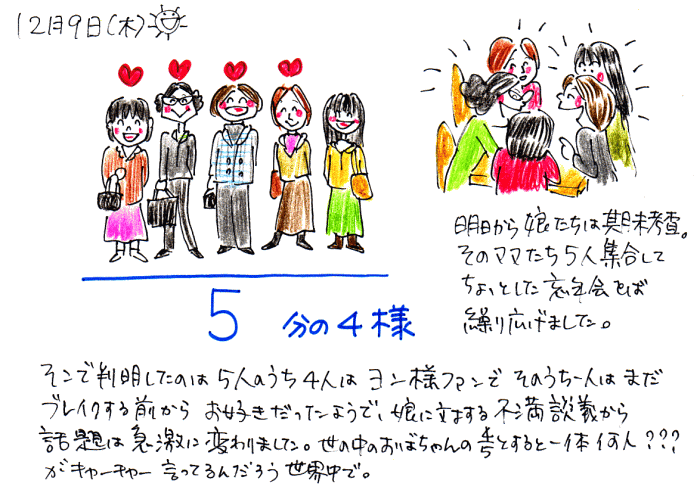 12月9日(木)
明日から娘たちは期末考査。
そのママたち5人集合して
ちょっとした忘年会をば
繰り広げました。
5 分の4様
そこで判明したのは5人のうち4人はヨン様ファンで そのうち一人はまだ
ブレイクする前から お好きだったようで、娘に対する不満談義から
話題は急激に変わりました。世の中のおばちゃんの とすると一体何人???
がキャーキャー言ってるんだろう世界中で。